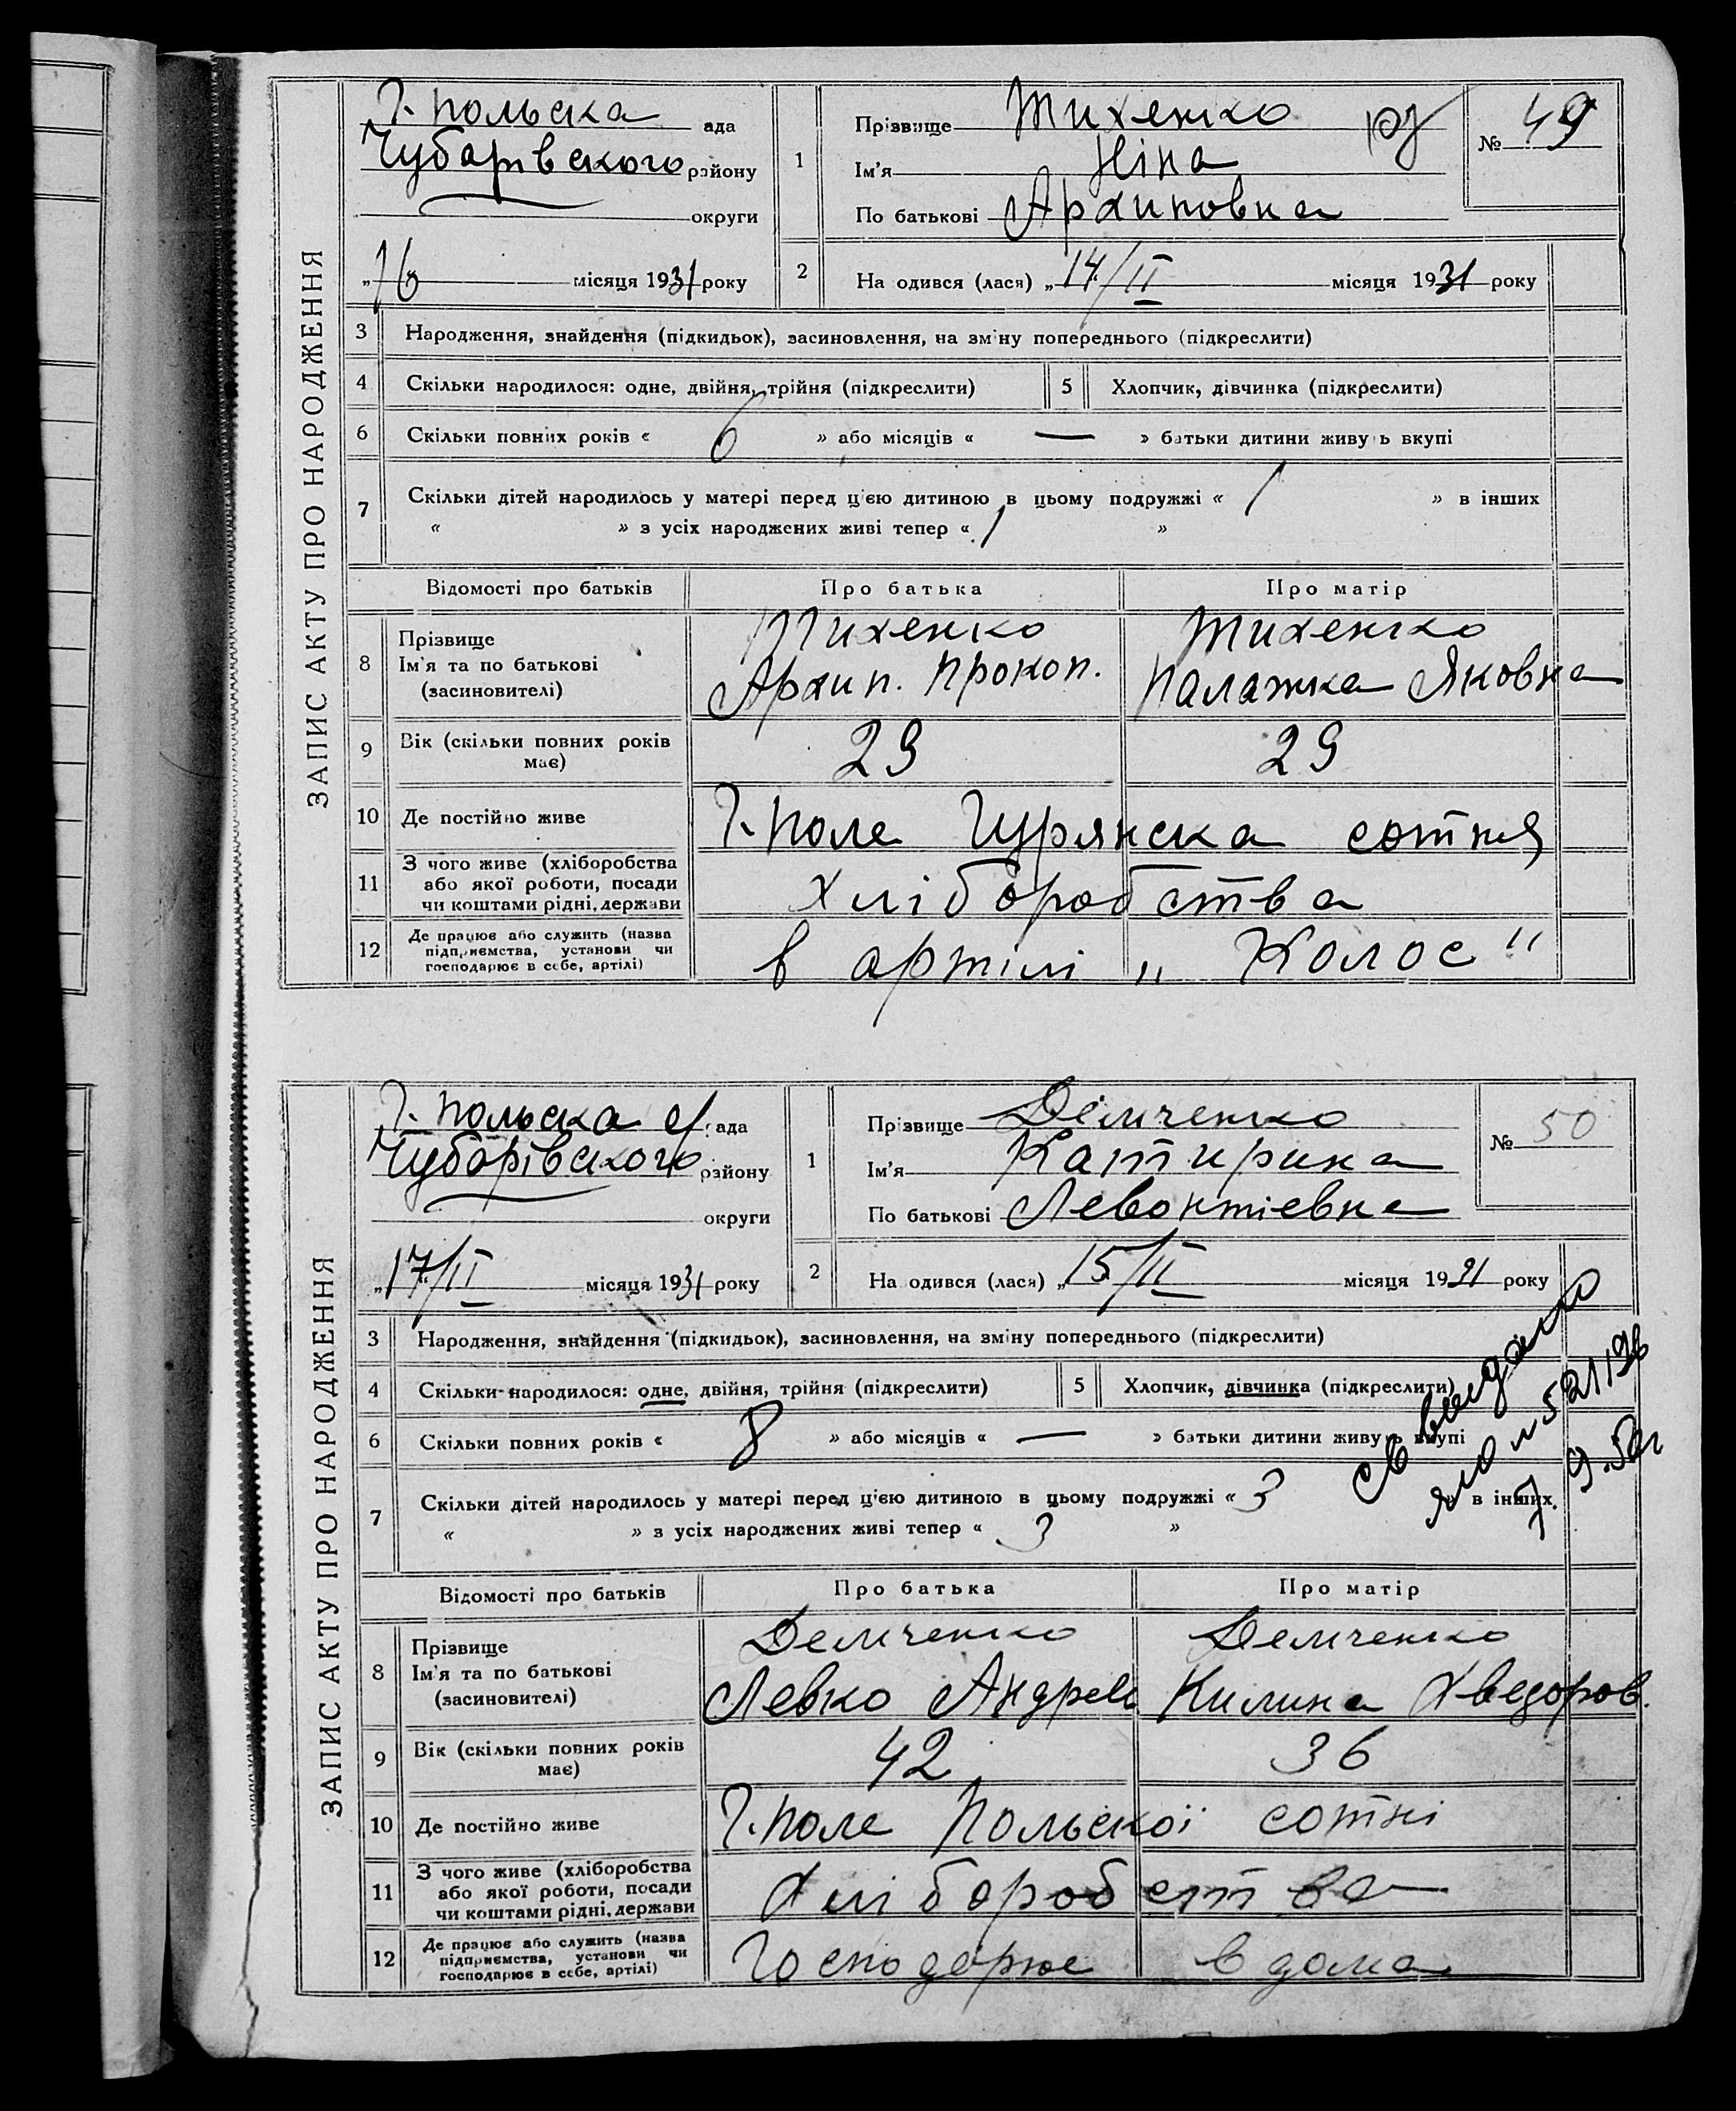 ЗАПИС АКТУ ПРО НАРОДЖЕННЯ
Г. польска ада
Чубарівского району
округи
„16 місяця 1931 року
1 Прізвище Тихенко
Ім'я Ніна
По батькові Архиповна
№ 49
2 На одився (лася) „14/II місяця 1931 року
3 Народження, знайдення (підкидьок), засиновлення, на зміну попереднього (підкреслити)
4 Скільки народилося: одне, двійня, трійня (підкреслити) 5 Хлопчик, дівчинка (підкреслити)
6 Скільки повних років « 6 » або місяців « — » батьки дитини живуть вкупі
7 Скільки дітей народилось у матері перед ц'єю дитиною в цьому подружжі « 1 » в інших
« » з усіх народжених живі тепер « 1 »
Відомості про батьків Про батька Про матір
8 Прізвище
Ім'я та по батькові
(засиновителі)
Тихенко Тихенко
Архип. Прокоп. Палажка Яковна
9 Вік (скільки повних років має) 29 29
10 Де постійно живе Г. Поле Гурянска сотня
11 З чого живе (хліборобства
або якої роботи, посади
чи коштами рідні, держави
хліборобства
12 Де працює або служить (назва
підприємства, установи чи
господарює в себе, артілі)
в артілі „Колос"
ЗАПИС АКТУ ПРО НАРОДЖЕННЯ
Г. польска с/ ада
Чуборівского району
округи
„17/II місяця 1931 року
1 Прізвище Демченко
Ім'я Катирина
По батькові Левонтіевна
№ 50
2 На одився (лася) „15/II місяця 1931 року
3 Народження, знайдення (підкидьок), засиновлення, на зміну попереднього (підкреслити)
4 Скільки народилося: одне, двійня, трійня (підкреслити) 5 Хлопчик, дівчинка (підкреслити)
6 Скільки повних років « 8 » або місяців « — » батьки дитини живуть вкупі
7 Скільки дітей народилось у матері перед ц'єю дитиною в цьому подружжі « 3 » в інших
« » з усіх народжених живі тепер « 3 »
Відомості про батьків Про батька Про матір
8 Прізвище
Ім'я та по батькові
(засиновителі)
Демченко Демченко
Левко Килина Хведоров.
9 Вік (скільки повних років має) 42 36
10 Де постійно живе Г. Поле Польскої сотні
11 З чого живе (хліборобства
або якої роботи, посади
чи коштами рідні, держави
хліборобства
12 Де працює або служить (назва
підприємства, установи чи
господарює в себе, артілі)
Господарює вдома